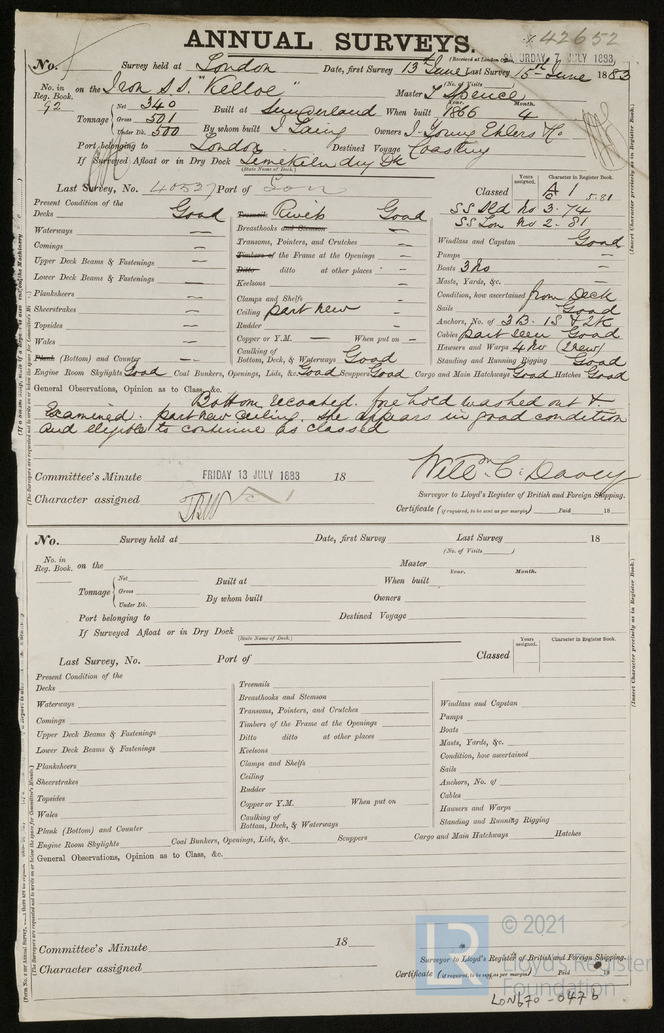 42652
ANNUAL SURVEYS.
(Received at London Office, SATURDAY 7 JULY 1883
No. Survey held at London Date, first Survey 13th June Last Survey 15th June 1883
(No. of Visits)
No. in Reg. Book. 92 on the Iron S.S. "Kelloe" Master J Spence
Tonnage Net 340 Gross 501 Under Dk. 500 Built at Sunderland When built Year. 1866 Month. 4
By whom built J Laing Owners J. Young Ehlers & Co
Port belonging to London Destined Voyage Coasting
If Surveyed Afloat or in Dry Dock Limekiln dry Dk
(State Name of Dock.)
Last Survey, No. 40527 Port of Lon Classed Years assigned. Character in Register Book. A 1 5.81
SS Sld No 3-74
SS Lon No 2-81
Present Condition of the
Decks Good
Waterways —
Comings —
Upper Deck Beams & Fastenings —
Lower Deck Beams & Fastenings —
Planksheers —
Sheerstrakes —
Topsides —
Wales —
Plank (Bottom) and Counter —
Treenails Rivets Good
Breasthooks and Stemson —
Transoms, Pointers, and Crutches —
Timbers of the Frame at the Openings —
Ditto ditto at other places —
Keelsons —
Clamps and Shelfs —
Ceiling part new
Rudder —
Copper or Y.M. — When put on —
Caulking of Bottom, Deck, & Waterways Good
Windlass and Capstan Good
Pumps —
Boats 3 No —
Masts, Yards, &c. —
Condition, how ascertained from Deck
Sails Good
Anchors, No. of 3 B. 1 S & 2 K
Cables part seen Good
Hawsers and Warps 4 No (1 new)
Standing and Running Rigging Good
Engine Room Skylights Good Coal Bunkers, Openings, Lids, &c. Good Scuppers Good Cargo and Main Hatchways Good Hatches Good
General Observations, Opinion as to Class, &c.
Bottom recoated. fore hold washed out &
Examined. part new Ceiling. She appears in good condition
and eligible to continue as classed
Committee's Minute FRIDAY 13 JULY 1883 18
Will m C. Davey
Character assigned
Surveyor to Lloyd's Register of British and Foreign Shipping.
Certificate (if required, to be sent as per margin) Paid 18
No. Survey held at Date, first Survey Last Survey 18
(No. of Visits )
No. in Reg. Book. on the Master
Tonnage Net Gross Under Dk. Built at When built Year. Month.
By whom built Owners
Port belonging to Destined Voyage
If Surveyed Afloat or in Dry Dock
(State Name of Dock.)
Last Survey, No. Port of Classed Years assigned. Character in Register Book.
Present Condition of the
Decks
Waterways
Comings
Upper Deck Beams & Fastenings
Lower Deck Beams & Fastenings
Planksheers
Sheerstrakes
Topsides
Wales
Plank (Bottom) and Counter
Treenails
Breasthooks and Stemson
Transoms, Pointers, and Crutches
Timbers of the Frame at the Openings
Ditto ditto at other places
Keelsons
Clamps and Shelfs
Ceiling
Rudder
Copper or Y.M. When put on
Caulking of Bottom, Deck, & Waterways
Windlass and Capstan
Pumps
Boats
Masts, Yards, &c.
Condition, how ascertained
Sails
Anchors, No. of
Cables
Hawsers and Warps
Standing and Running Rigging
Engine Room Skylights Coal Bunkers, Openings, Lids, &c. Scuppers Cargo and Main Hatchways Hatches
General Observations, Opinion as to Class, &c.
Committee's Minute 18
Character assigned
Surveyor to Lloyd's Register of British and Foreign Shipping.
Certificate (if required, to be sent as per margin) Paid 18
(Insert Character precisely as in Register Book.)
(Insert Character precisely as in Register Book.)
(The Surveyors are requested not to write on or below the space for Committee's Minute.)
LR
© 2021
Lloyd's Register
Foundation
LON670-0476